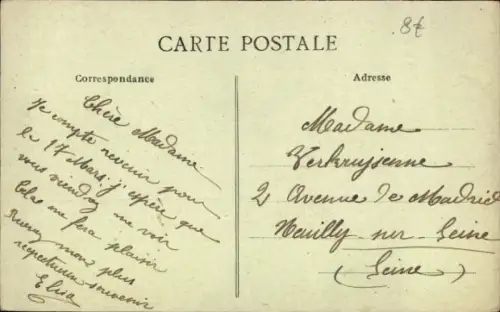 8€
CARTE POSTALE
Correspondance
Adresse
Chère Madame
Je compte revenir pour
le 17 Mars j'espère que
vous viendrez me voir
cela me fera plaisir
Recevez mon plus
respectueux souvenir
Elisa
Madame
Verkruijsenne
2 Avenue de Madrid
Neuilly sur Seine
(Seine)